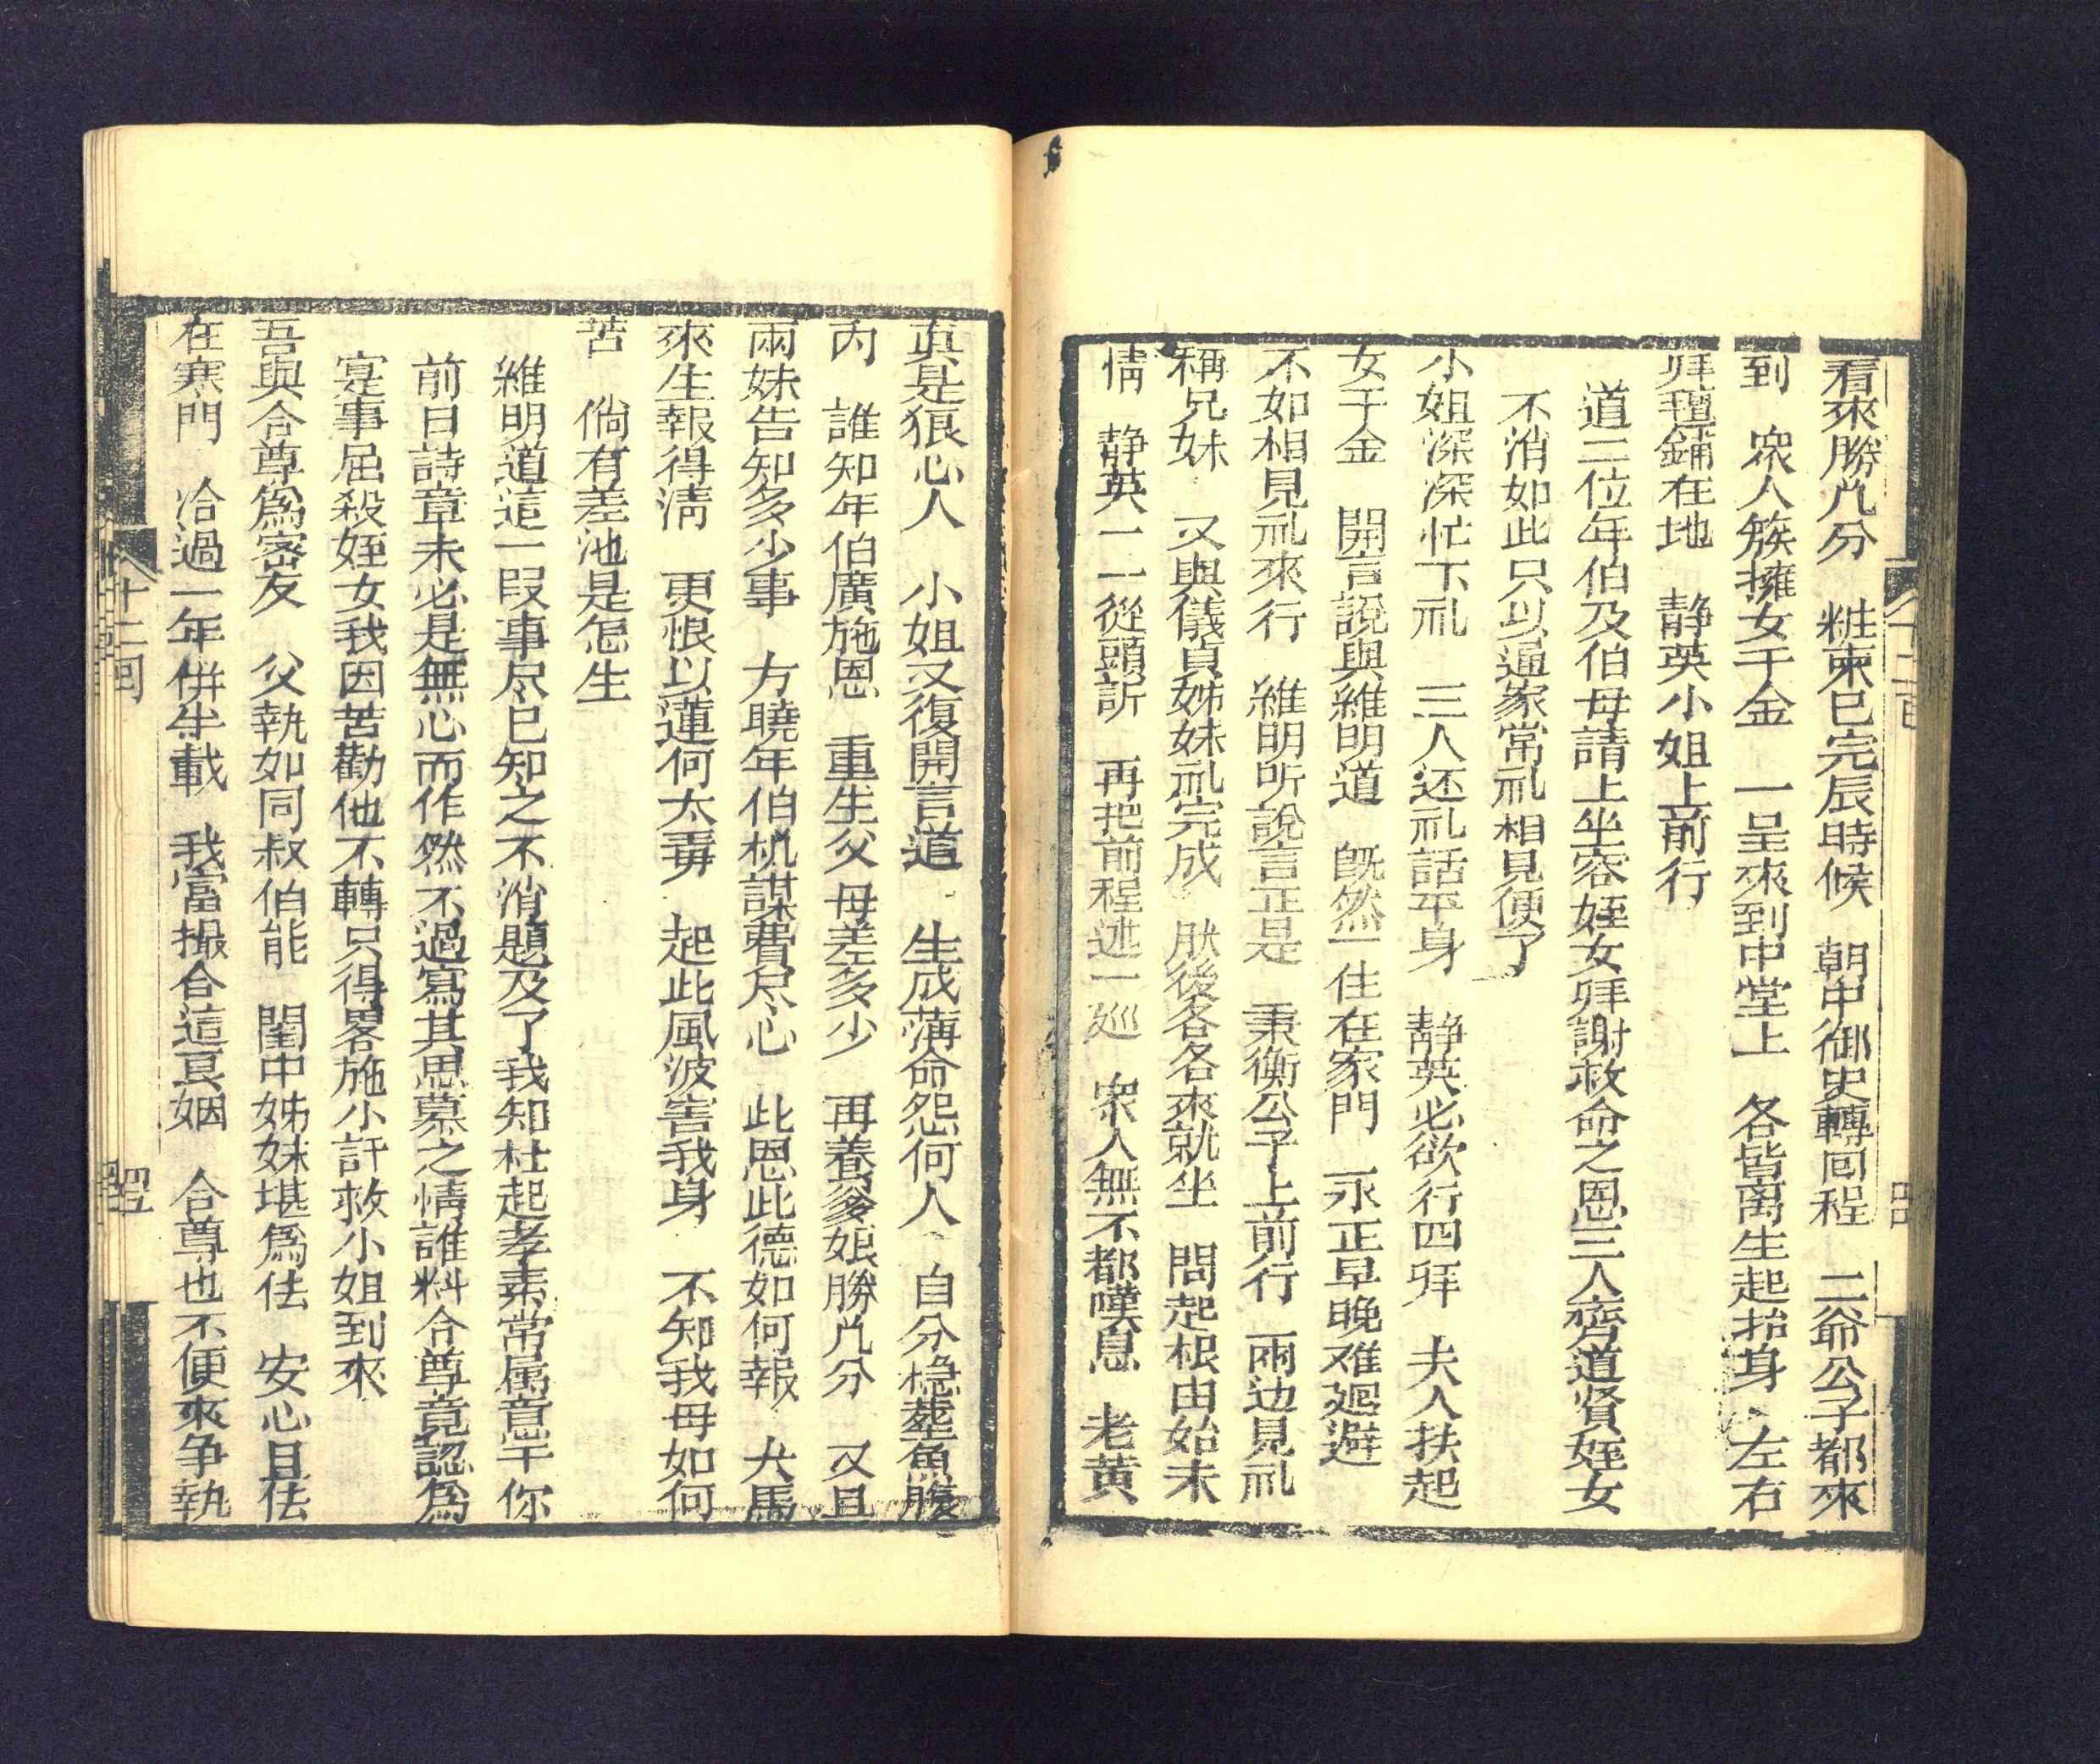 看來勝几分　粧柬已完辰時候　朝中御史轉回程　二爺公子都來
到　衆人簇擁女千金　一呈來到中堂上　各皆离生起抬身　左右
拜氊鋪在地　静英小姐上前行
道二位年伯及伯母請上坐容姪女拜謝救命之恩三人齊道賢姪女
不消如此只以通家常礼相見便了
小姐深深忙下礼　三人还礼話平身　静英必欲行四拜　夫人扶起
女千金　開言說與維明道　既然一住在家門　永正早晚难廻避
不如相見礼來行　維明听說言正是　秉衡公子上前行　兩边見礼
稱兄妹　又與儀貞姊妹礼完成　肰後各各來就坐　問起根由始末
情　静英一一從頭訴　再把前程述一廵　衆人無不都嘆息　老黄
真是狠心人　小姐又復開言道　生成薄命怨何人　自分稳塟魚腹
内　誰知年伯廣施恩　重生父母差多少　再養爹娘勝几分　又且
兩妹告知多少事　方曉年伯机謀費尽心　此恩此德如何報　犬馬
來生報得清　更恨以蓮何太毒　起此風波害我身　不知我母如何
苦　倘有差池是怎生
維明道這一叚事尽已知之不消題及了我知杜起孝素常属意于你
前日詩章未必是無心而作然不過寫其思慕之情誰料合尊竟認爲
寔事屈殺姪女我因苦勸他不轉只得畧施小計救小姐到來
吾與合尊爲密友　父執如同叔伯能　閨中姊妹堪爲伭　安心且伭
在寒門　洽過一年併半載　我當撮合這良姻　合尊也不便來争執
十二回
十二回